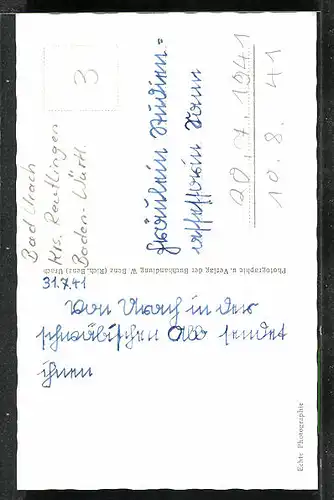 Bad Urach
Krs. Reutlingen
Baden-Württ.
3
Fräulein Studien=
assessorin
20.7.1941
10.8.41
Photographie u. Verlag der Buchhandlung W. Benz (Rich. Benz) Urach
31.7.41
Von Urach in der
schwäbischen Alb sendet
ihnen
Echte Photographie